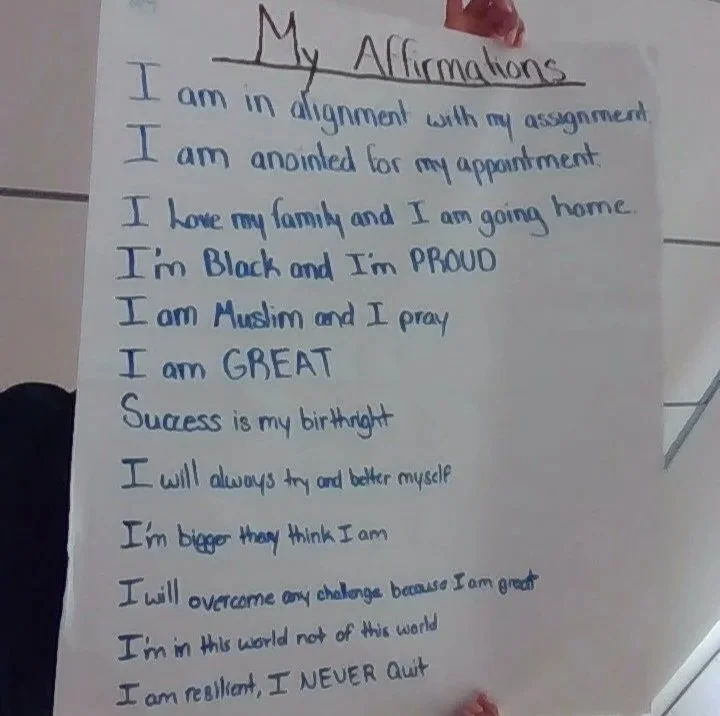 My Affirmations
I am in alignment with my assignment.
I am anointed for my appointment.
I Love my family and I am going home.
I'm Black and I'm PROUD
I am Muslim and I pray
I am GREAT
Success is my birthright
I will always try and better myself
I'm bigger they think I am
I will overcome any challenge because I am great
I'm in this world not of this world
I am resilient, I NEVER Quit